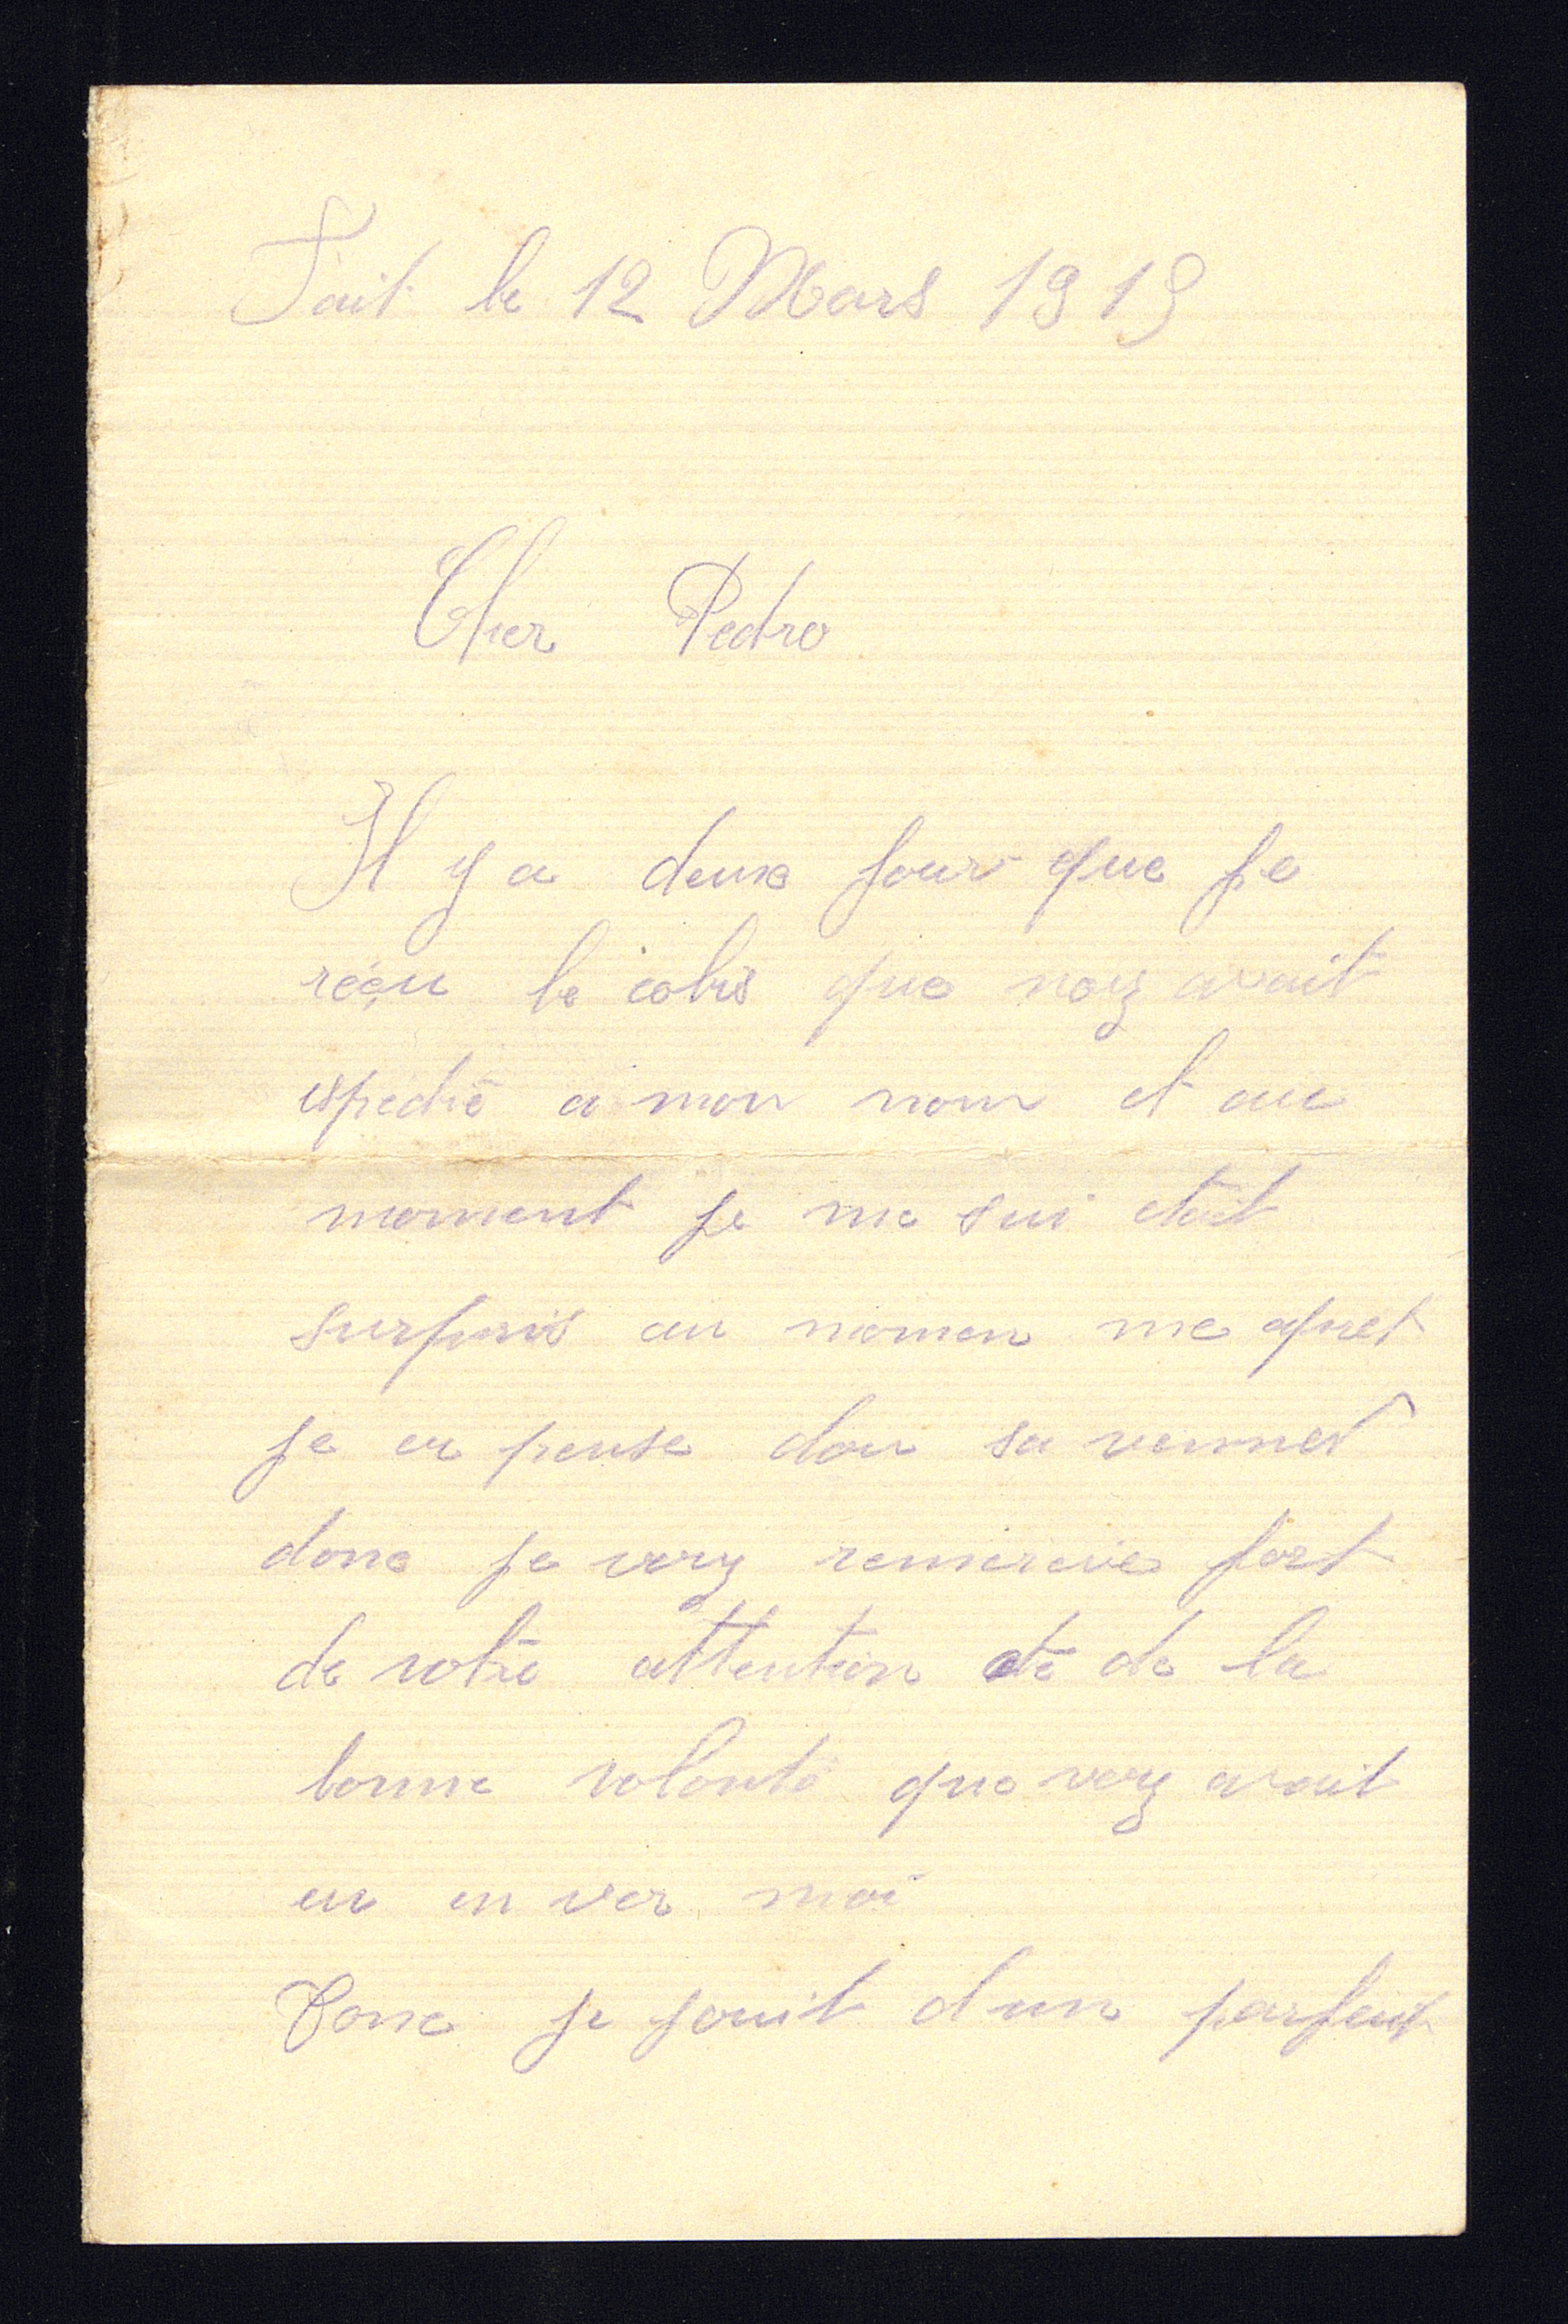 Fait le 12 Mars 1919
Cher Pedro
Il y a deux jour que je
réçu le colis que vouz avait
espedié a mon nom et au
moment je me sui etait
surpris au momen me apret
je ea pense dou sa vennet
donc je vouz remercie fort
de votre attention et de la
bonne volonté que vouz avait
eu en ver moi
Donc je jouit d un parfait